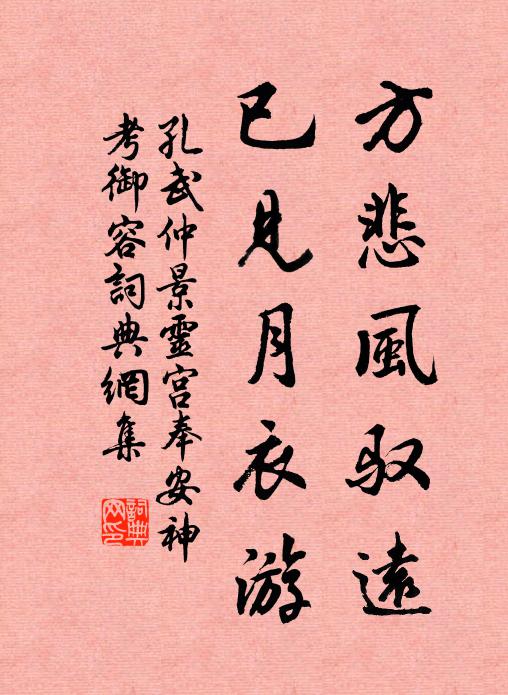 方悲風馭遠
已見月衣游
孔武仲景靈宮奉安神
考御容詞典網集
詞典
网印